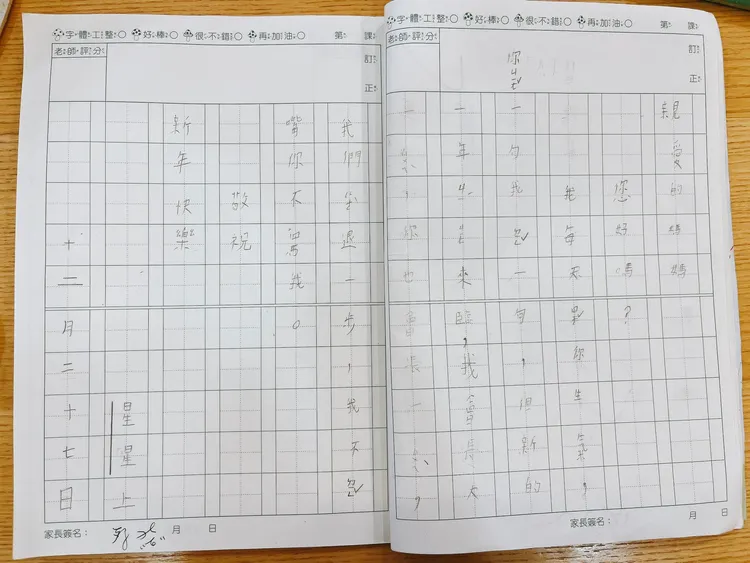 字體工整○ 好棒○ 很不錯○ 再加油○ 第 課
老師評分 訂正
親愛的媽媽
您好嗎?
我每天你生氣,
一句我一句,但新的
一年來臨,我會長大
一歲,你也會長一歲,
家長簽名: 月 日
字體工整○ 好棒○ 很不錯○ 再加油○ 第 課
老師評分 訂正
我們退一步,我不
嘴你不罵我。
敬祝
新年快樂
星星上
十二月二十七日
家長簽名: 月 日